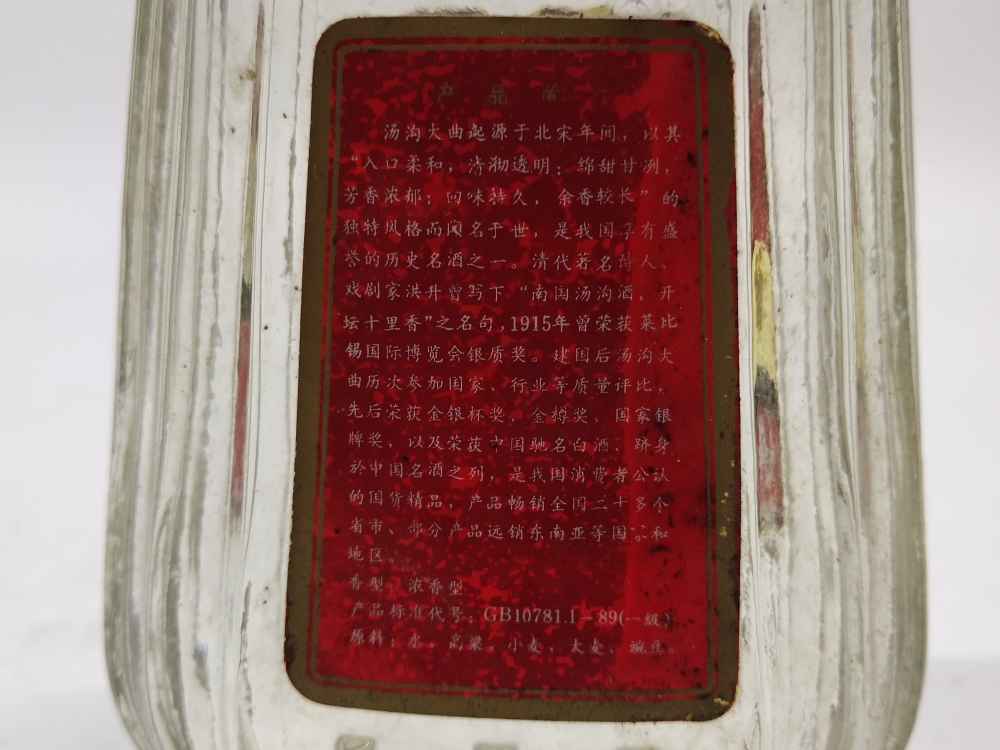 产品简
汤沟大曲起源于北宋年间，以其
“入口柔和，清澈透明；绵甜甘冽，
芳香浓郁；回味持久，余香较长”的
独特风格而闻名于世，是我国享有盛
誉的历史名酒之一。清代著名诗人、
戏剧家洪升曾写下“南国汤沟酒，开
坛十里香”之名句，1915年曾荣获莱比
锡国际博览会银质奖。建国后汤沟大
曲历次参加国家、行业等质量评比，
先后荣获金银杯奖、金樽奖、国家银
牌奖，以及荣获中国驰名白酒，跻身
於中国名酒之列，是我国消费者公认
的国货精品，产品畅销全国二十多个
省市、部分产品远销东南亚等国家和
地区。
香型：浓香型
产品标准代号：GB10781.1-89(一级)
原料：水、高粱、小麦、大麦、豌豆。